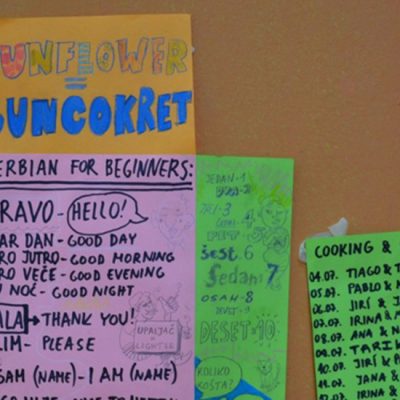 UNFLOWER
=
SUNCOKRET
ERBIAN FOR BEGINNERS:
RAVO - HELLO!
AR DAN - GOOD DAY
RO JUTRO - GOOD MORNING
RO VEČE - GOOD EVENING
U NOĆ - GOOD NIGHT
ALA → THANK YOU!
LIM - PLEASE
SAM (NAME) - I AM (NAME)
UPALJAČ
=
LIGHTER
JEDAN - 1
TRI - 3
PET - 5
šest 6
Sedam 7
OSAM - 8
DEVET - 9
DESET - 10
KOLIKO
KOŠTA?
COOKING &
04.07. TIAGO & T
05.07. PABLO & N
06.07. JIRÍ & J
07.07. IRINA & M
08.07. ANA & N
09.07. TARIK
10.07. JIRÍ & P
11.07. JANA &
12.07. IRINA &